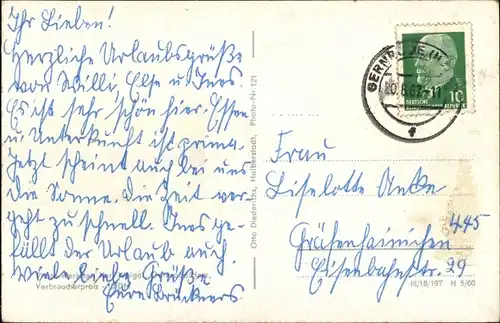 Ihr Lieben!
Herzliche Urlaubsgrüße
von Willi, Else u. Ines
Es ist sehr schön hier. Essen
u. Unterkunft ist prima.
Jetzt scheint auch bei uns
die Sonne. Die Zeit ver-
geht zu schnell. Ines ge-
fällt der Urlaub auch.
Viele liebe Grüße
Eure
Verbraucherpreis
Otto Diederichs, Halberstadt, Photo-Nr. 121
GERNRODE
10
DEUTSCHE
DEMOKRATISCHE REPUBLIK
f
Frau
Liselotte Anke
445
Gräfenhainichen
Eisenbahnstr. 29
III/18/197 N 5/60